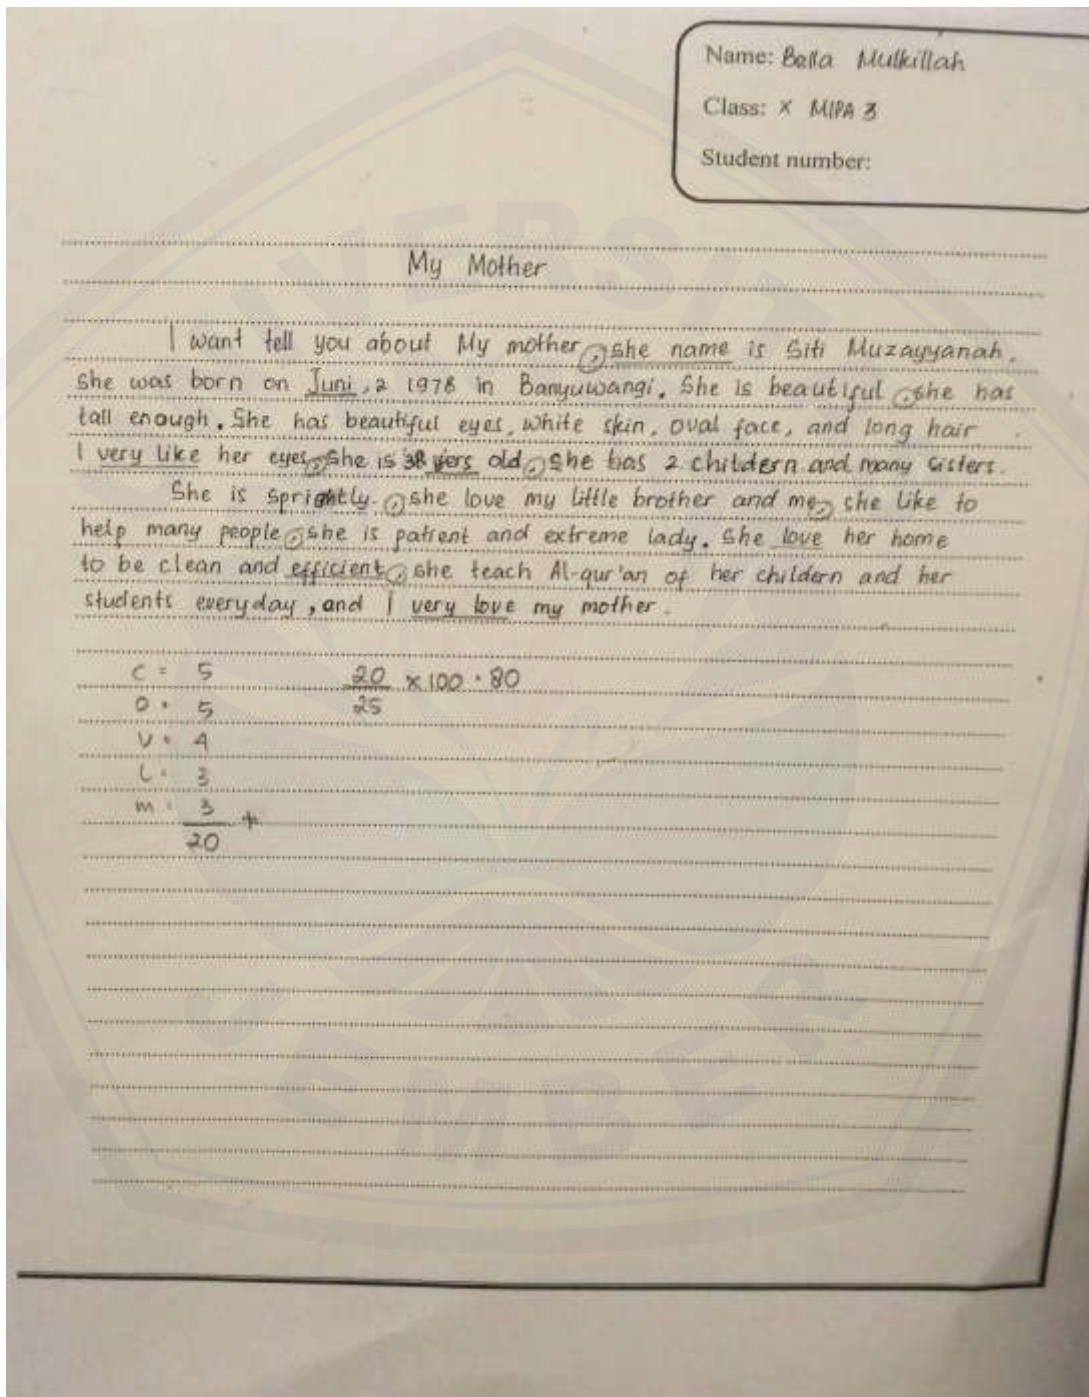 Name: Bella Mulkillah
Class: X MIPA 3
Student number:
My Mother
I want tell you about My mother, she name is Siti Muzayyanah.
She was born on Juni, 2 1978 in Banyuwangi. She is beautiful, she has
tall enough. She has beautiful eyes, white skin, oval face, and long hair
I very like her eyes, She is 38 yers old, She has 2 childern and many sisters.
She is sprightly, she love my little brother and me, she like to
help many people, she is patient and extreme lady. She love her home
to be clean and efficient, she teach Al-qur'an of her childern and her
students everyday, and I very love my mother.
C = 5
20/25 x 100 = 80
O = 5
V = 4
L = 3
m = 3 +
20
UNIVERSITAS
JEMBER